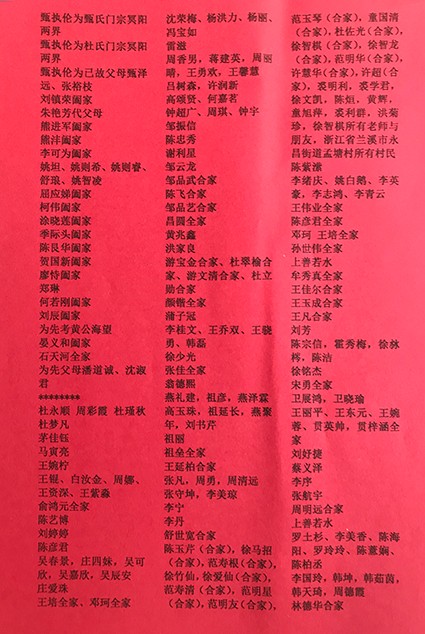 甄执伦为甄氏门宗冥阳
两界
甄执伦为杜氏门宗冥阳
两界
甄执伦为已故父母甄泽
远、张裕枝
刘镇荣阖家
朱艳芳代父母
熊进军阖家
熊沣阖家
李可为阖家
姚坦、姚则希、姚则睿、
舒琅、姚智凌
屈应娣阖家
柯伟阖家
涂晓莲阖家
季际头阖家
陈艮华阖家
贺国新阖家
廖恃阖家
郑琳
何若刚阖家
刘辰阖家
为先考黄公海望
晏义和阖家
石天河全家
为先父母潘道诚、沈淑
君
********
杜永顺 周彩霞 杜瑾秋
杜梦凡
茅佳钰
马寅亮
王婉柠
王锟、白汝金、周娜、
王资深、王紫淼
俞鸿元全家
陈艺博
刘婷婷
陈彦君
吴春景，庄四妹，吴可
欣，吴嘉欣，吴辰安
庄爱珠
王培全家、邓珂全家
沈荣梅、杨洪力、杨丽、
冯宝如
雷滋
周香男，蒋建英，周丽
晴，王勇欢，王馨慧
吕树森，许润新
高颂贤、何嘉茗
钟超广、周琪、钟宇
邹振信
陈忠秀
谢利星
邹云龙
邹品武合家
陈飞合家
邹品艺合家
昌圆全家
黄兆鑫
洪家良
游宝金合家、杜翠榆合
家、游文清合家、杜立
勋合家
颜锴全家
蒲子冠
李桂文、王乔双、王骁
勇、韩磊
徐少光
张佳全家
翁德熙
燕礼建，祖彦，燕泽霖
高玉珠，祖延长，燕聚
年，刘书芹
祖丽
祖垒全家
王延柏合家
张凡，周勇，周清远
张守坤，李美琼
李宁
李丹
舒世宽合家
陈玉芹（合家），徐马招
（合家），范寿根（合家），
徐竹仙，徐爱仙（合家），
范寿清（合家），范明星
（合家），范明友（合家），
范玉琴（合家），童国清
（合家），杜佐光（合家），
徐智棋（合家），徐智龙
（合家），范明华（合家），
许慧华（合家），许超（合
家），裘明利，裘学君，
徐文凯，陈烜，黄辉，
童旭萍，裘利群，洪菊
珍，徐智棋所有老师与
朋友，浙江省兰溪市永
昌街道孟塘村所有村民
陈紫潆
李绪庆、姚白鹅、李英
豪，李志鸿、李青云
王伟业全家
陈彦君全家
邓珂 王培全家
孙世伟全家
上善若水
牟秀真全家
王佳尔合家
王玉成合家
王凡合家
刘芳
陈宗信，霍秀梅，徐林
梣，陈洁
徐铭杰
宋勇全家
卫展鸿、卫晓瑜
王丽平、王东元、王婉
蓉、贯英帅，贯梓涵全
家
刘好捷
蔡义泽
李序
张航宇
周明远合家
上善若水
罗土杉、李美香、陈海
阳、罗玲玲、陈薏娴、
陈柏丞
李国玲，韩坤，韩茹茵，
韩天琦，周德霞
林德华合家